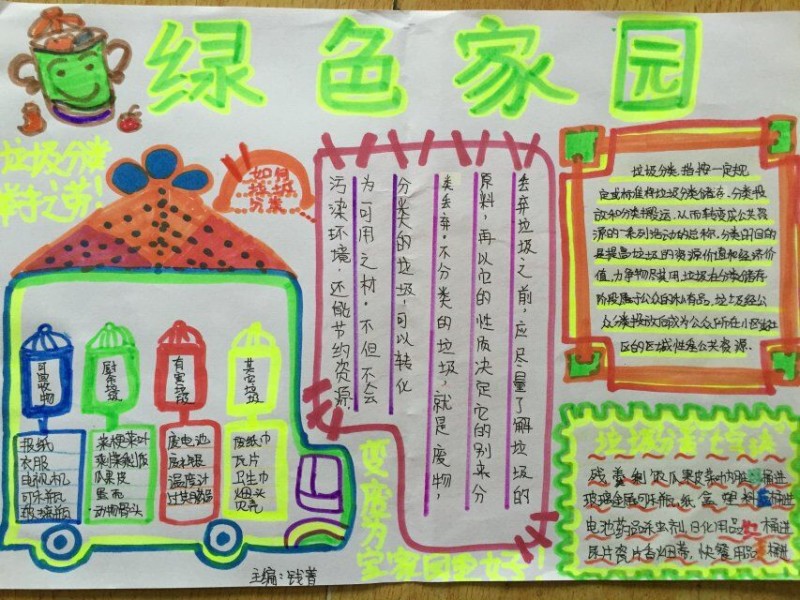 绿色家园
垃圾分类
举手之劳!
如何
垃圾
分类
可回收物
厨余垃圾
有害垃圾
其它垃圾
报纸
衣服
电视机
可乐瓶
玻璃瓶
菜梗菜叶
剩菜剩饭
瓜果皮
蛋壳
动物骨头
废电池
温度计
废纸巾
瓦片
卫生巾
烟头
贝壳
丢弃垃圾之前,应尽量了解垃圾的
原料,再以它的性质决定它的别来分
类丢弃。不分类的垃圾,就是废物,
分类的垃圾,可以转化
为可用之材。不但不会
污染环境,还能节约资源
垃圾分类,指按一定规
定或标准将垃圾分类储存、分类投
放和分类搬运,从而转变成公共资
源的一系列活动的总称。分类的目的
是提高垃圾的资源价值和经济价
值,力争物尽其用。垃圾在分类储存
阶段属于公众的私有品,垃圾经公
众分类投放后成为公众所在小区或社
区的区域性准公共资源.
变废为
宝家园更好!
残羹剩饭瓜果皮菜叶内脏 桶进
玻璃金属可乐瓶,纸盒塑料 桶进
电池药品杀虫剂,日化用品 桶进
尿片瓷片香烟蒂,快餐用品 桶进
主编:钱菁